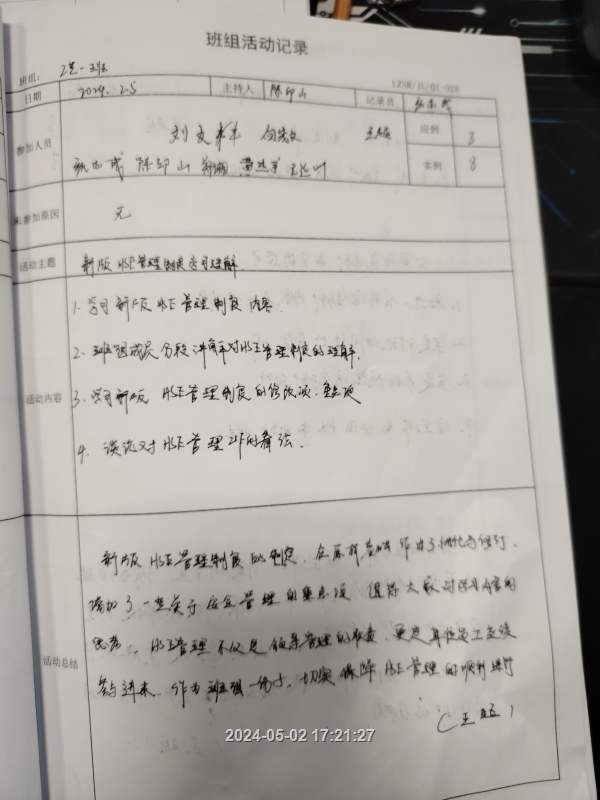 班组活动记录
班组： 一班
LZSH/JL/QT-028
日期 2024.2.5 主持人 陈印山 记录员
参加人员 刘 王 应到 8
陈印山 实到 8
未参加原因 无
活动主题 新版HSE管理制度学习理解.
活动内容
1. 学习新版HSE管理制度内容.
2. 班组成员分段讲解对HSE管理制度的理解.
3. 学习新版HSE管理制度的修改项、重点项
4. 谈论对HSE管理工作的看法.
活动总结
新版HSE管理制度的制定, 在原有基础作出了优化与修订、
增加了一些关于安全管理的重点项, 值得大家对学习内容的
思考, HSE管理不仅是领导管理的职责, 更是每位员工应该
参与进来. 作为班组一份子, 切实保障HSE管理的顺利进行
2024-05-02 17:21:27